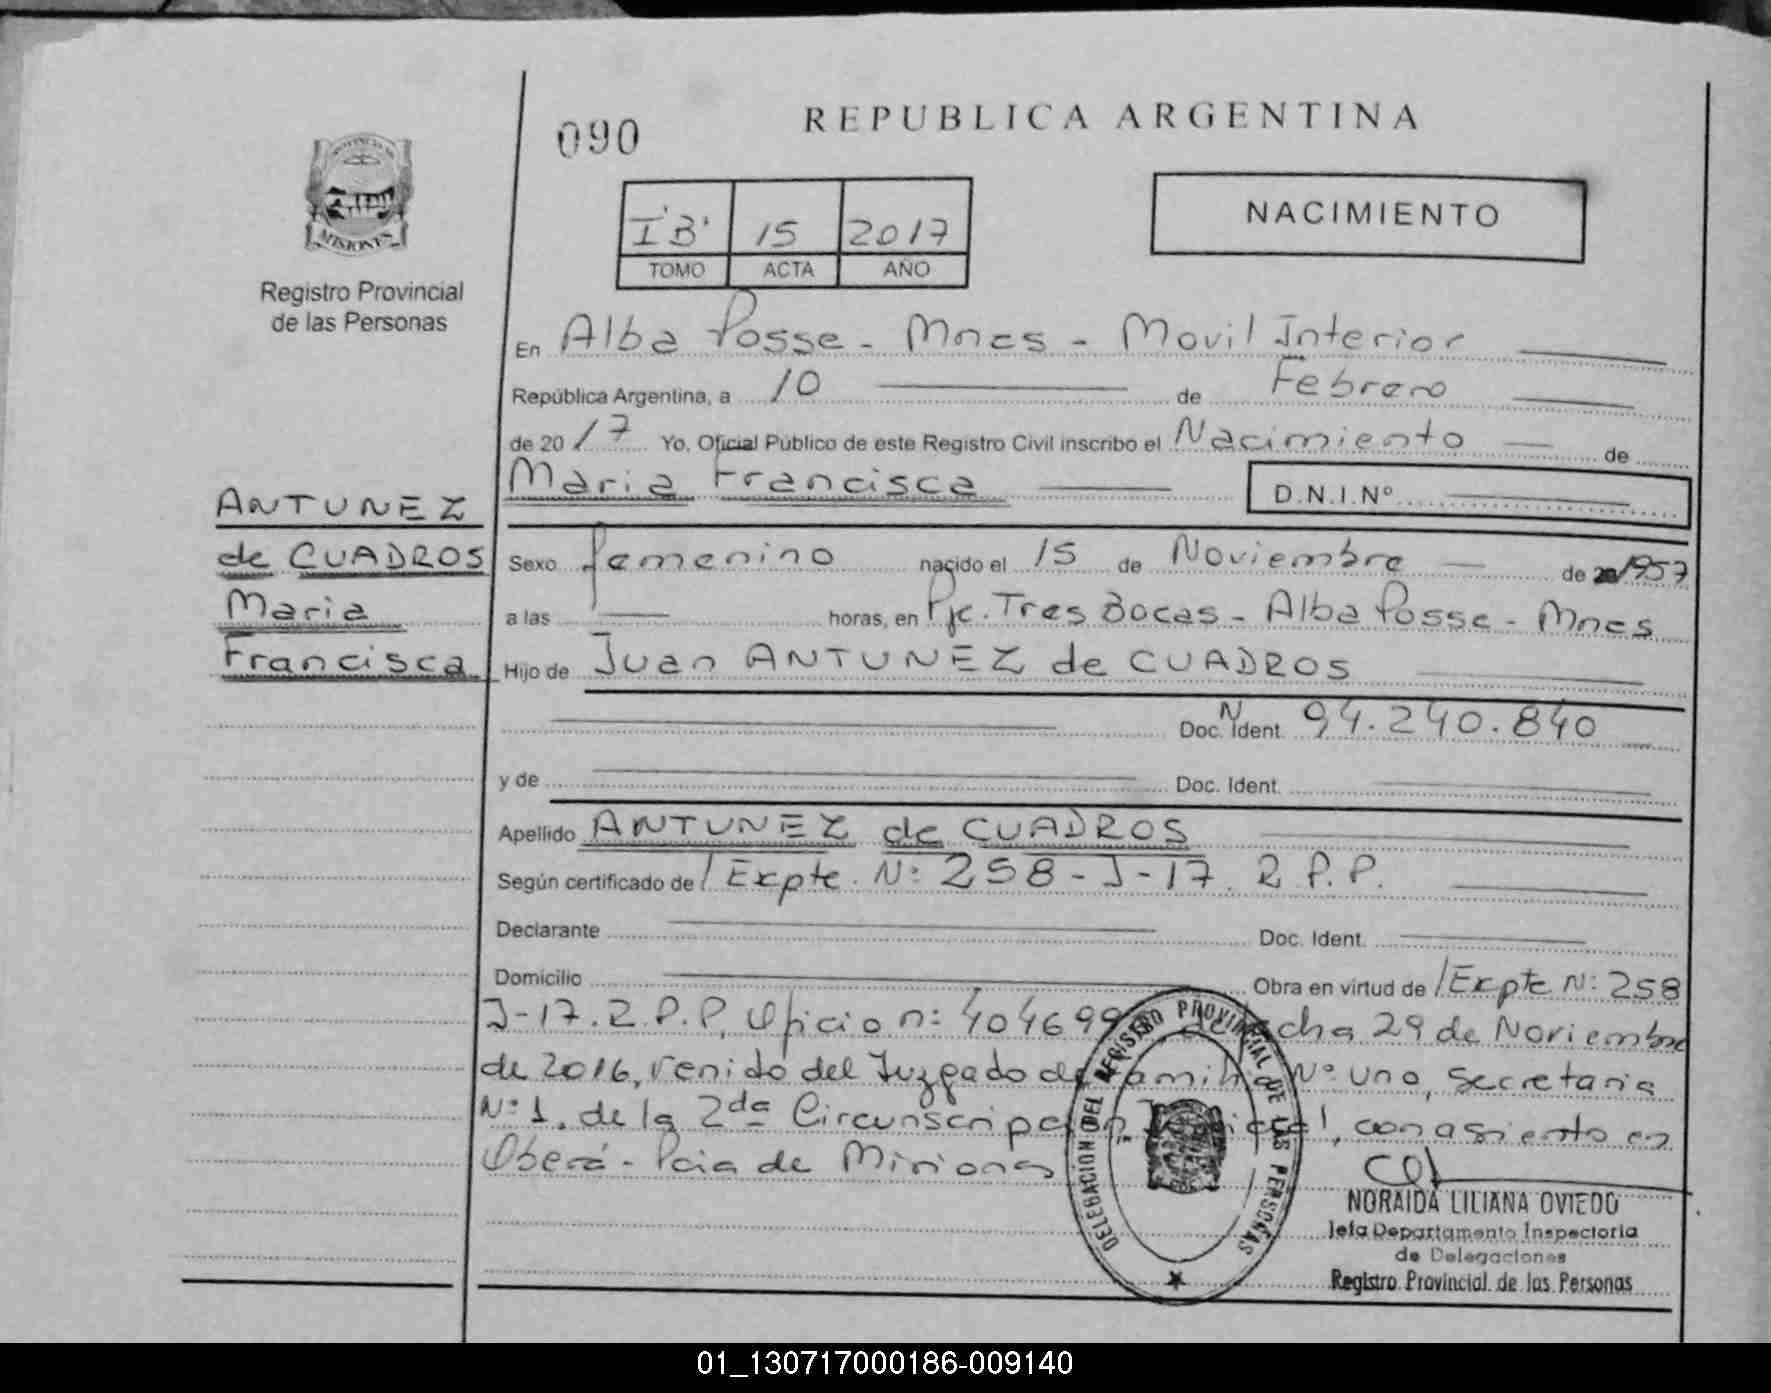 REPUBLICA ARGENTINA
090
PROVINCIA DE
MISIONES
Registro Provincial
de las Personas
I"B" 15 2017
TOMO ACTA AÑO
NACIMIENTO
En Alba Posse - Mnes - Movil Interior
República Argentina, a 10 de Febrero
de 2017 Yo, Oficial Público de este Registro Civil inscribo el Nacimiento de
Maria Francisca D.N.I.Nº
ANTUNEZ
de CUADROS
Maria
Francisca
Sexo femenino nacido el 15 de Noviembre de 1957
a las horas, en Pje. Tres Bocas - Alba Posse - Mnes
Hijo de Juan ANTUNEZ de CUADROS
Doc. N Ident. 94.240.840
y de Doc. Ident.
Apellido ANTUNEZ de CUADROS
Según certificado de / Expte. Nº 258-J-17. R.P.P.
Declarante Doc. Ident.
Domicilio Obra en virtud de / Expte Nº 258
J-17. R.P.P, Oficio nº 404699 de fecha 29 de Noviembre
de 2016, venido del Juzgado de Familia Nº uno, secretaria
Nº 1, de la 2da Circunscripción Judicial, con asiento en
Oberá - Pcia de Misiones
DELEGACION DEL REGISTRO PROVINCIAL DE LAS PERSONAS
NORAIDA LILIANA OVIEDO
Jefa Departamento Inspectoria
de Delegaciones
Registro Provincial de las Personas
01_130717000186-009140